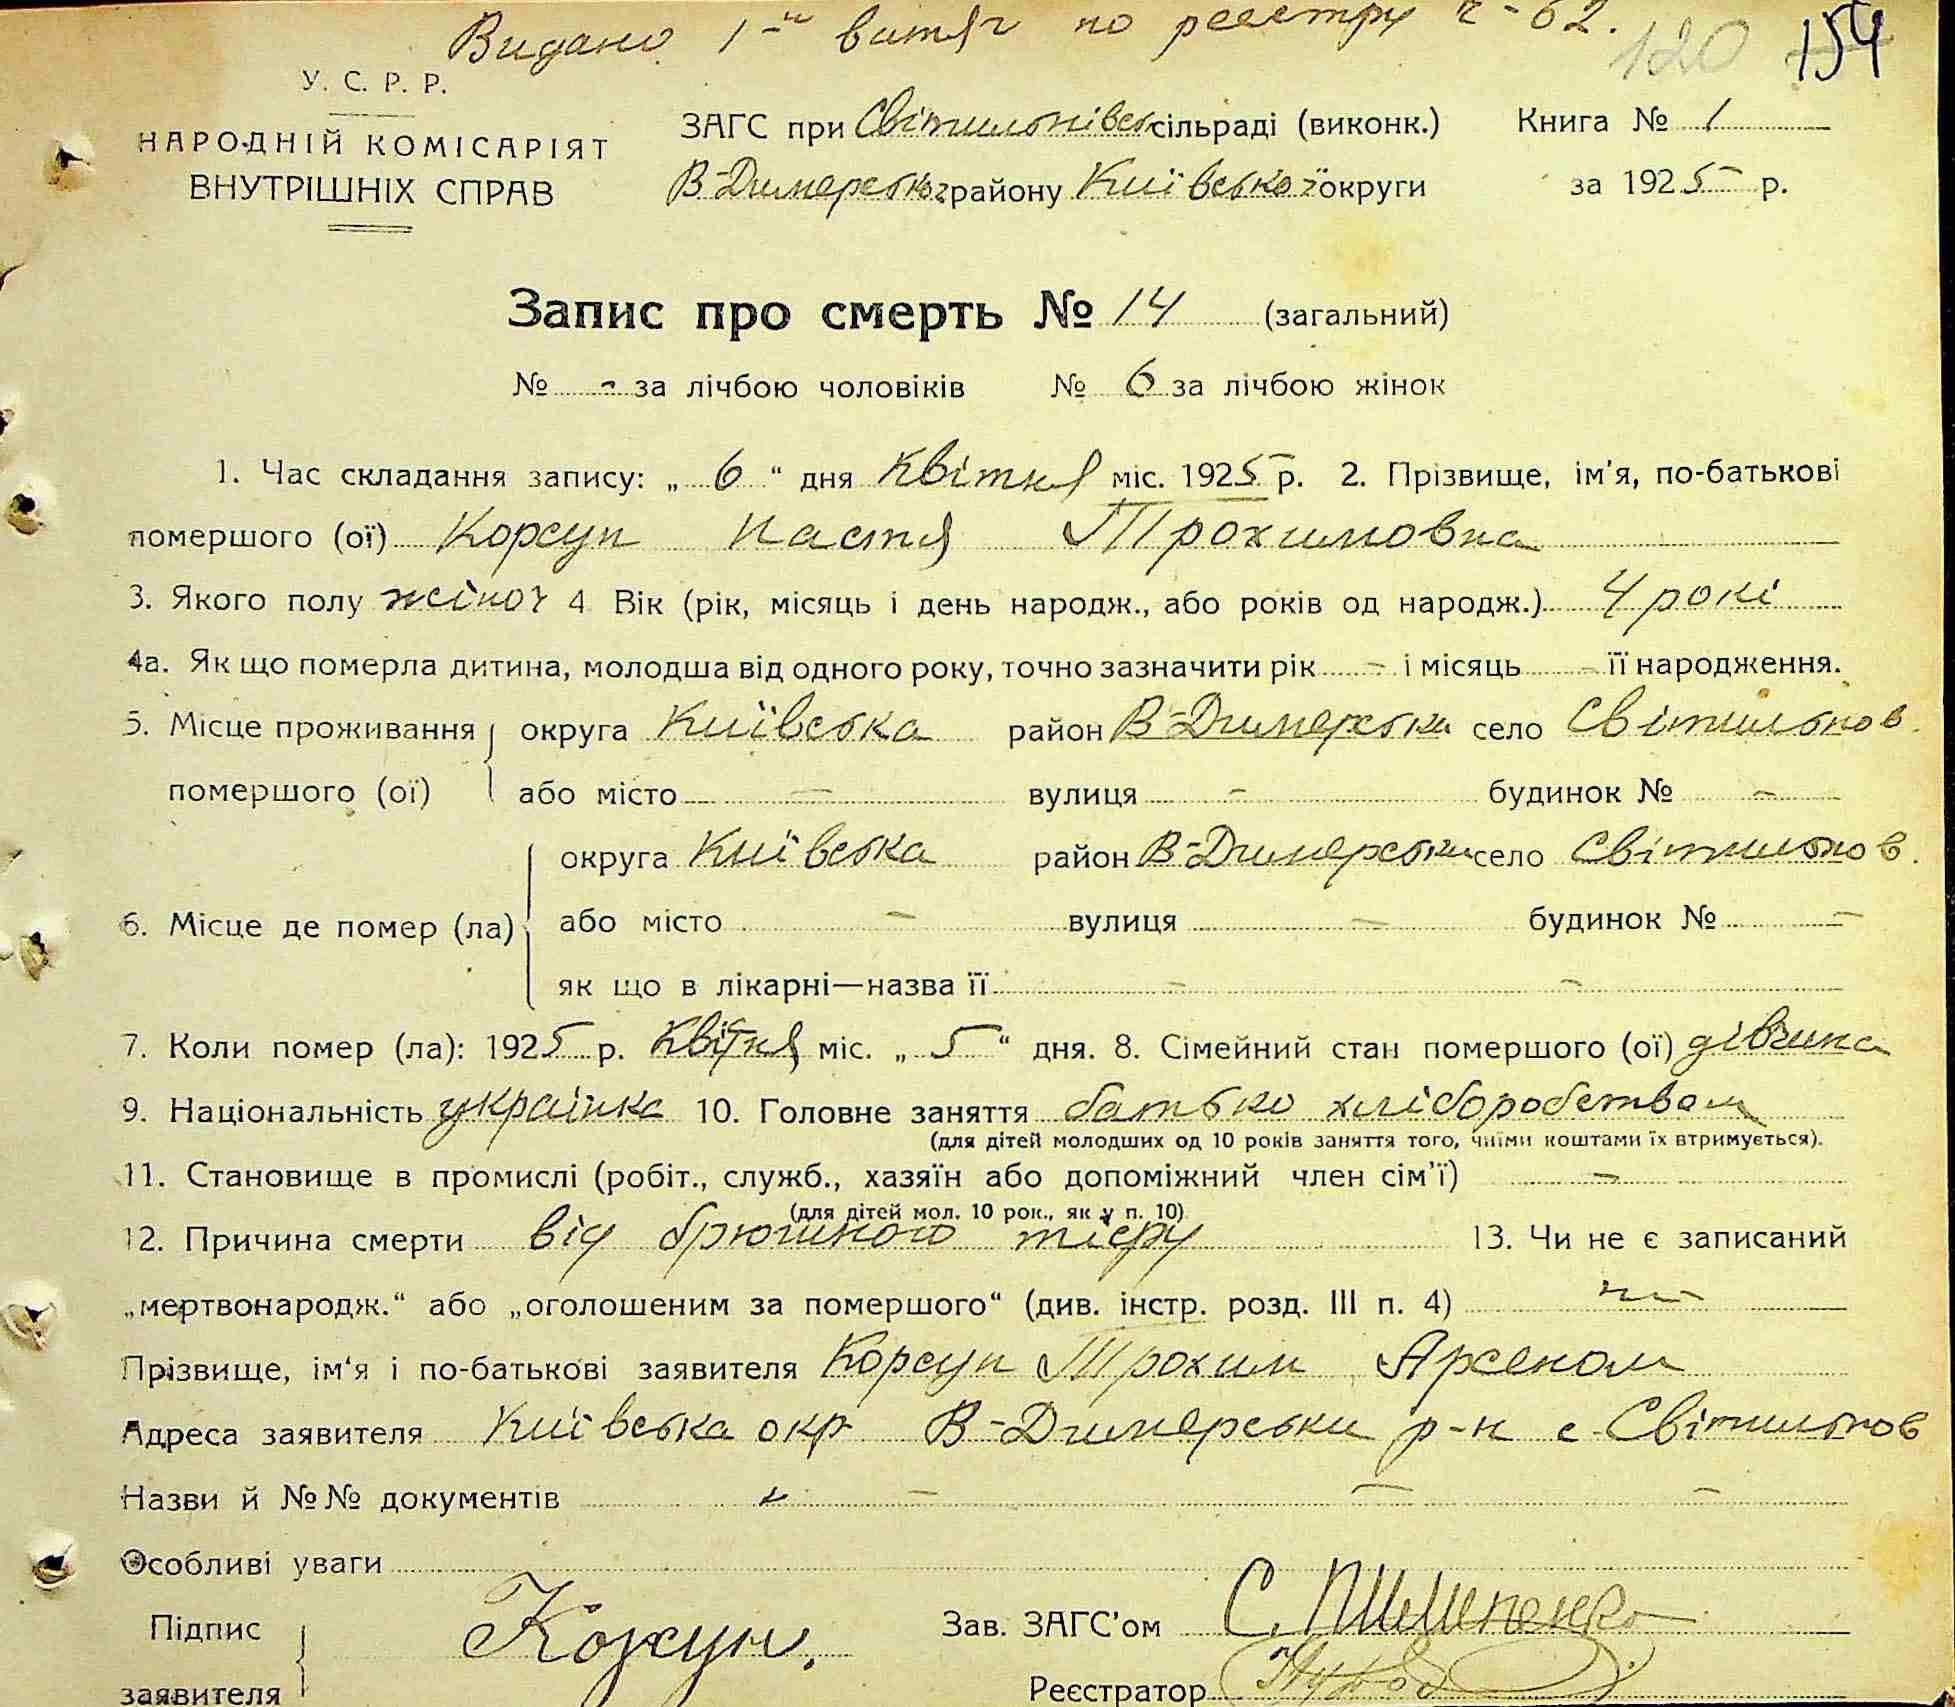 Видано 1-й витяг по реєстру ч-62.
120 154
У. С. Р. Р.
НАРОДНІЙ КОМІСАРІЯТ
ВНУТРІШНІХ СПРАВ
ЗАГС при Світильнівськ сільраді (виконк.) Книга № 1
В-Димерськ району Київської округи за 1925 р.
Запис про смерть № 14 (загальний)
№ - за лічбою чоловіків № 6 за лічбою жінок
1. Час складання запису: „ 6 “ дня Квітня міс. 1925 р. 2. Прізвище, ім'я, по-батькові
помершого (ої) Корсун Настя Трохимовна
3. Якого полу жіноч 4 Вік (рік, місяць і день народж., або років од народж.) 4 рокі
4а. Як що померла дитина, молодша від одного року, точно зазначити рік - і місяць - її народження.
5. Місце проживання округа Київська район В-Димерськи село Світильнов.
помершого (ої) або місто - вулиця - будинок № -
округа Київська район В-Димерськи село Світильнов.
6. Місце де помер (ла) або місто - вулиця - будинок № -
як що в лікарні—назва її - -
7. Коли помер (ла): 1925 р. Квітня міс. „ 5 “ дня. 8. Сімейний стан помершого (ої) дівчина
9. Національність українка 10. Головне заняття батько хліборобством
(для дітей молодших од 10 років заняття того, чиїми коштами їх втримується).
11. Становище в промислі (робіт., служб., хазяїн або допоміжний член сім'ї) -
(для дітей мол. 10 рок., як у п. 10)
12. Причина смерти від брюшного тіфу 13. Чи не є записаний
„мертвонародж.“ або „оголошеним за помершого“ (див. інстр. розд. III п. 4)
Прізвище, ім'я і по-батькові заявителя Корсун Трохим Арсеном
Адреса заявителя Київська окр В-Димерськи р-н с Світильнов
Назви й №№ документів - - -
Особливі уваги
Підпис Корсун. Зав. ЗАГС'ом С. Пилипенко
заявителя Реєстратор